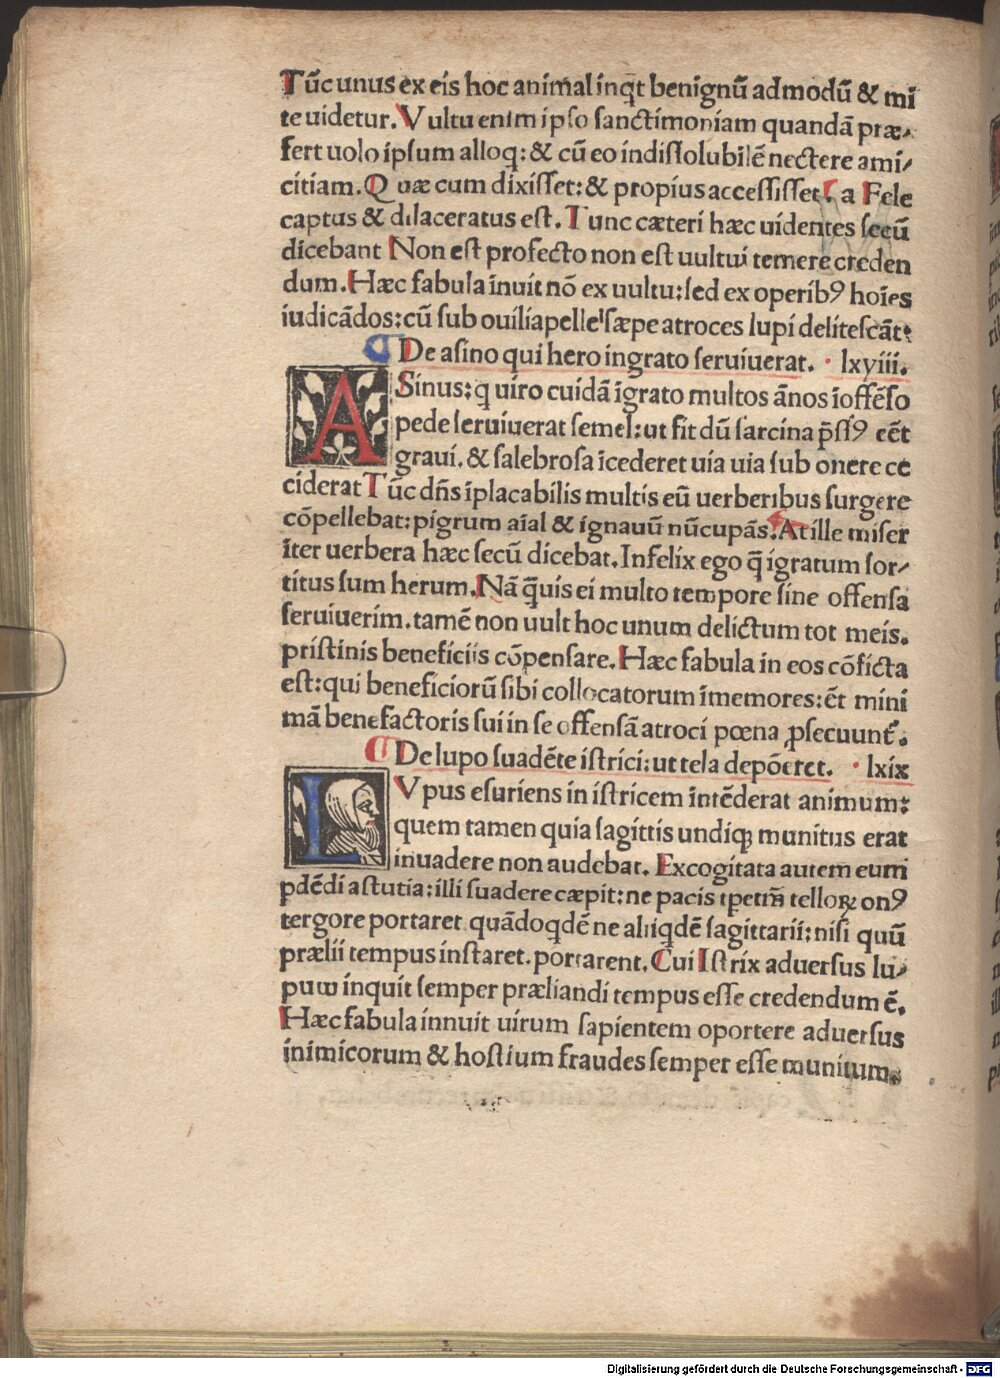 Tūc unus ex eis hoc animal inqt benignū admodū & mi
te uidetur. Vultu enim ipso sanctimoniam quandā præ-
fert uolo ipsum alloq: & cū eo indissolubilē nectere ami-
citiam. Quæ cum dixisset: & propius accessisset, a Fele
captus & dilaceratus est. Tunc cæteri hæc uidentes secū
dicebant Non est profecto non est uultui temere creden
dum. Hæc fabula inuit nō ex uultu: sed ex operibꝰ hoīes
iudicādos: cū sub ouili a pelle sæpe atroces lupi delitescāt:
De asino qui hero ingrato seruiuerat. lxyiii.
ASinus: q uiro cuidā īgrato multos ānos īoffēso
pede seruiuerat semel: ut fit dū sarcina p̄ssꝰ eēt
graui. & salebrosa īcederet uia uia sub onere ce
ciderat Tūc dn̄s īplacabilis multis eū uerberibus surgere
cōpellebat: pigrum aīal & ignauū nūcupās. At ille miser
īter uerbera hæc secū dicebat. Infelix ego q̄ īgratum sor-
titus sum herum. Nā q̄uis ei multo tempore sine offensa
seruiuerim. tamē non uult hoc unum delictum tot meis.
pristinis beneficiis cōpensare. Hæc fabula in eos cōficta
est: qui beneficiorū sibi collocatorum īmemores: ēt mini
mā benefactoris sui in se offensā atroci pœna ꝓsecuunt̄.
De lupo suadēte istrici: ut tela depōeret. lxix
LVpus esuriens in istricem intēderat animum:
quem tamen quia sagittis undiqꝫ munitus erat
inuadere non audebat. Excogitata autem eum
pdēdi astutia: illi suadere cæpit: ne pacis tpetm̄ telloꝝ onꝰ
tergore portaret quādoqdē ne aliiqdē sagittarii: nisi quū
prælii tempus instaret. portarent. Cui Istrix aduersus lu-
pum inquit semper præliandi tempus esse credendum ē.
Hæc fabula innuit uirum sapientem oportere aduersus
inimicorum & hostium fraudes semper esse munitum.
Digitalisierung gefördert durch die Deutsche Forschungsgemeinschaft - DFG